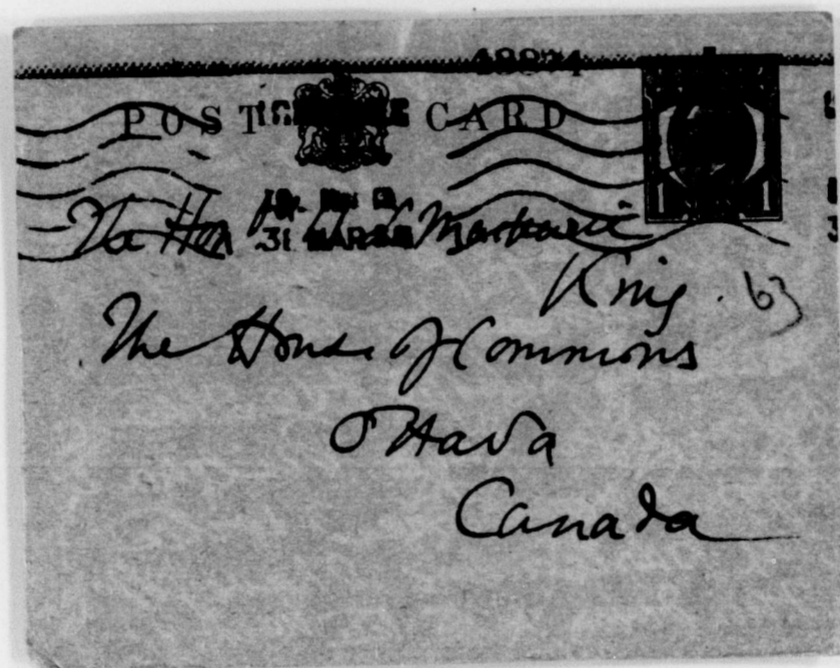 48874
POST CARD
31 MAR
The Hon Mackenzie
King . 63
The House of Commons
Ottawa
Canada